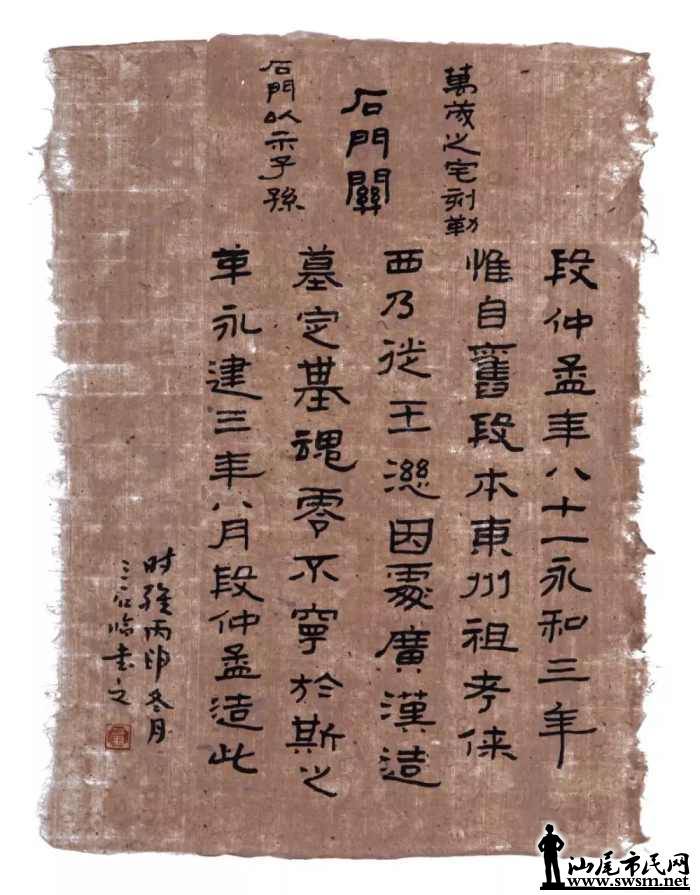 萬歲之宅刻勒
石門關
石門以示子孫
段仲孟年八十一永和三年
惟自舊段本東州祖考徠
西乃從王因處廣漢造
墓定基魂零不寧於斯之
革永建三年八月段仲孟造此
时維丙申冬月
三石臨書之
汕尾市民网
www.swsm.net